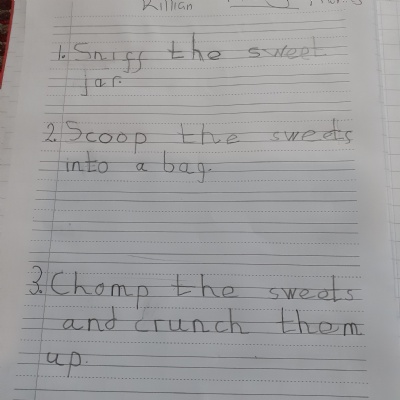 Killian
1. Sniff the sweet
jar.
2. Scoop the sweets
into a bag.
3. Chomp the sweets
and crunch them
up.